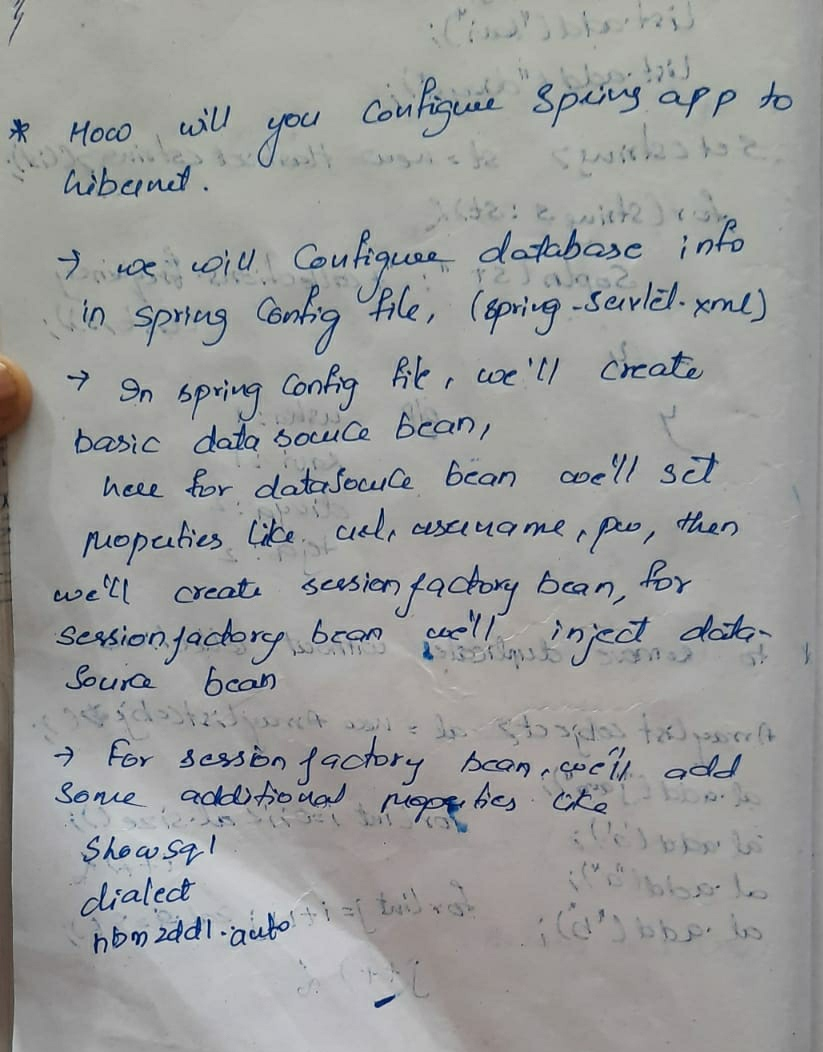 * How will you configure spring app to
hibernet.
→ we will Configure database info
in spring Config file, (spring-servlet.xml)
→ In spring Config file, we'll create
basic data source bean,
here for datasource bean we'll set
properties like url, username, pw, then
we'll create session factory bean, for
session factory bean we'll inject data-
source bean
→ For session factory bean, we'll add
some additional properties like
Show sql
dialect
hbm2ddl.auto